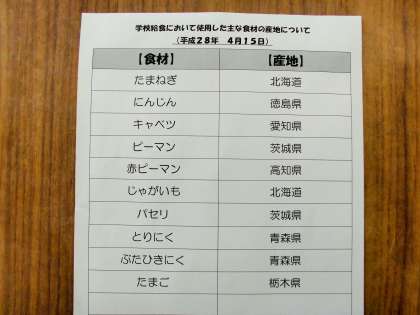 学校給食において使用した主な食材の産地について
（平成２８年　４月１５日）
【食材】　【産地】
たまねぎ　北海道
にんじん　徳島県
キャベツ　愛知県
ピーマン　茨城県
赤ピーマン　高知県
じゃがいも　北海道
パセリ　茨城県
とりにく　青森県
ぶたひきにく　青森県
たまご　栃木県